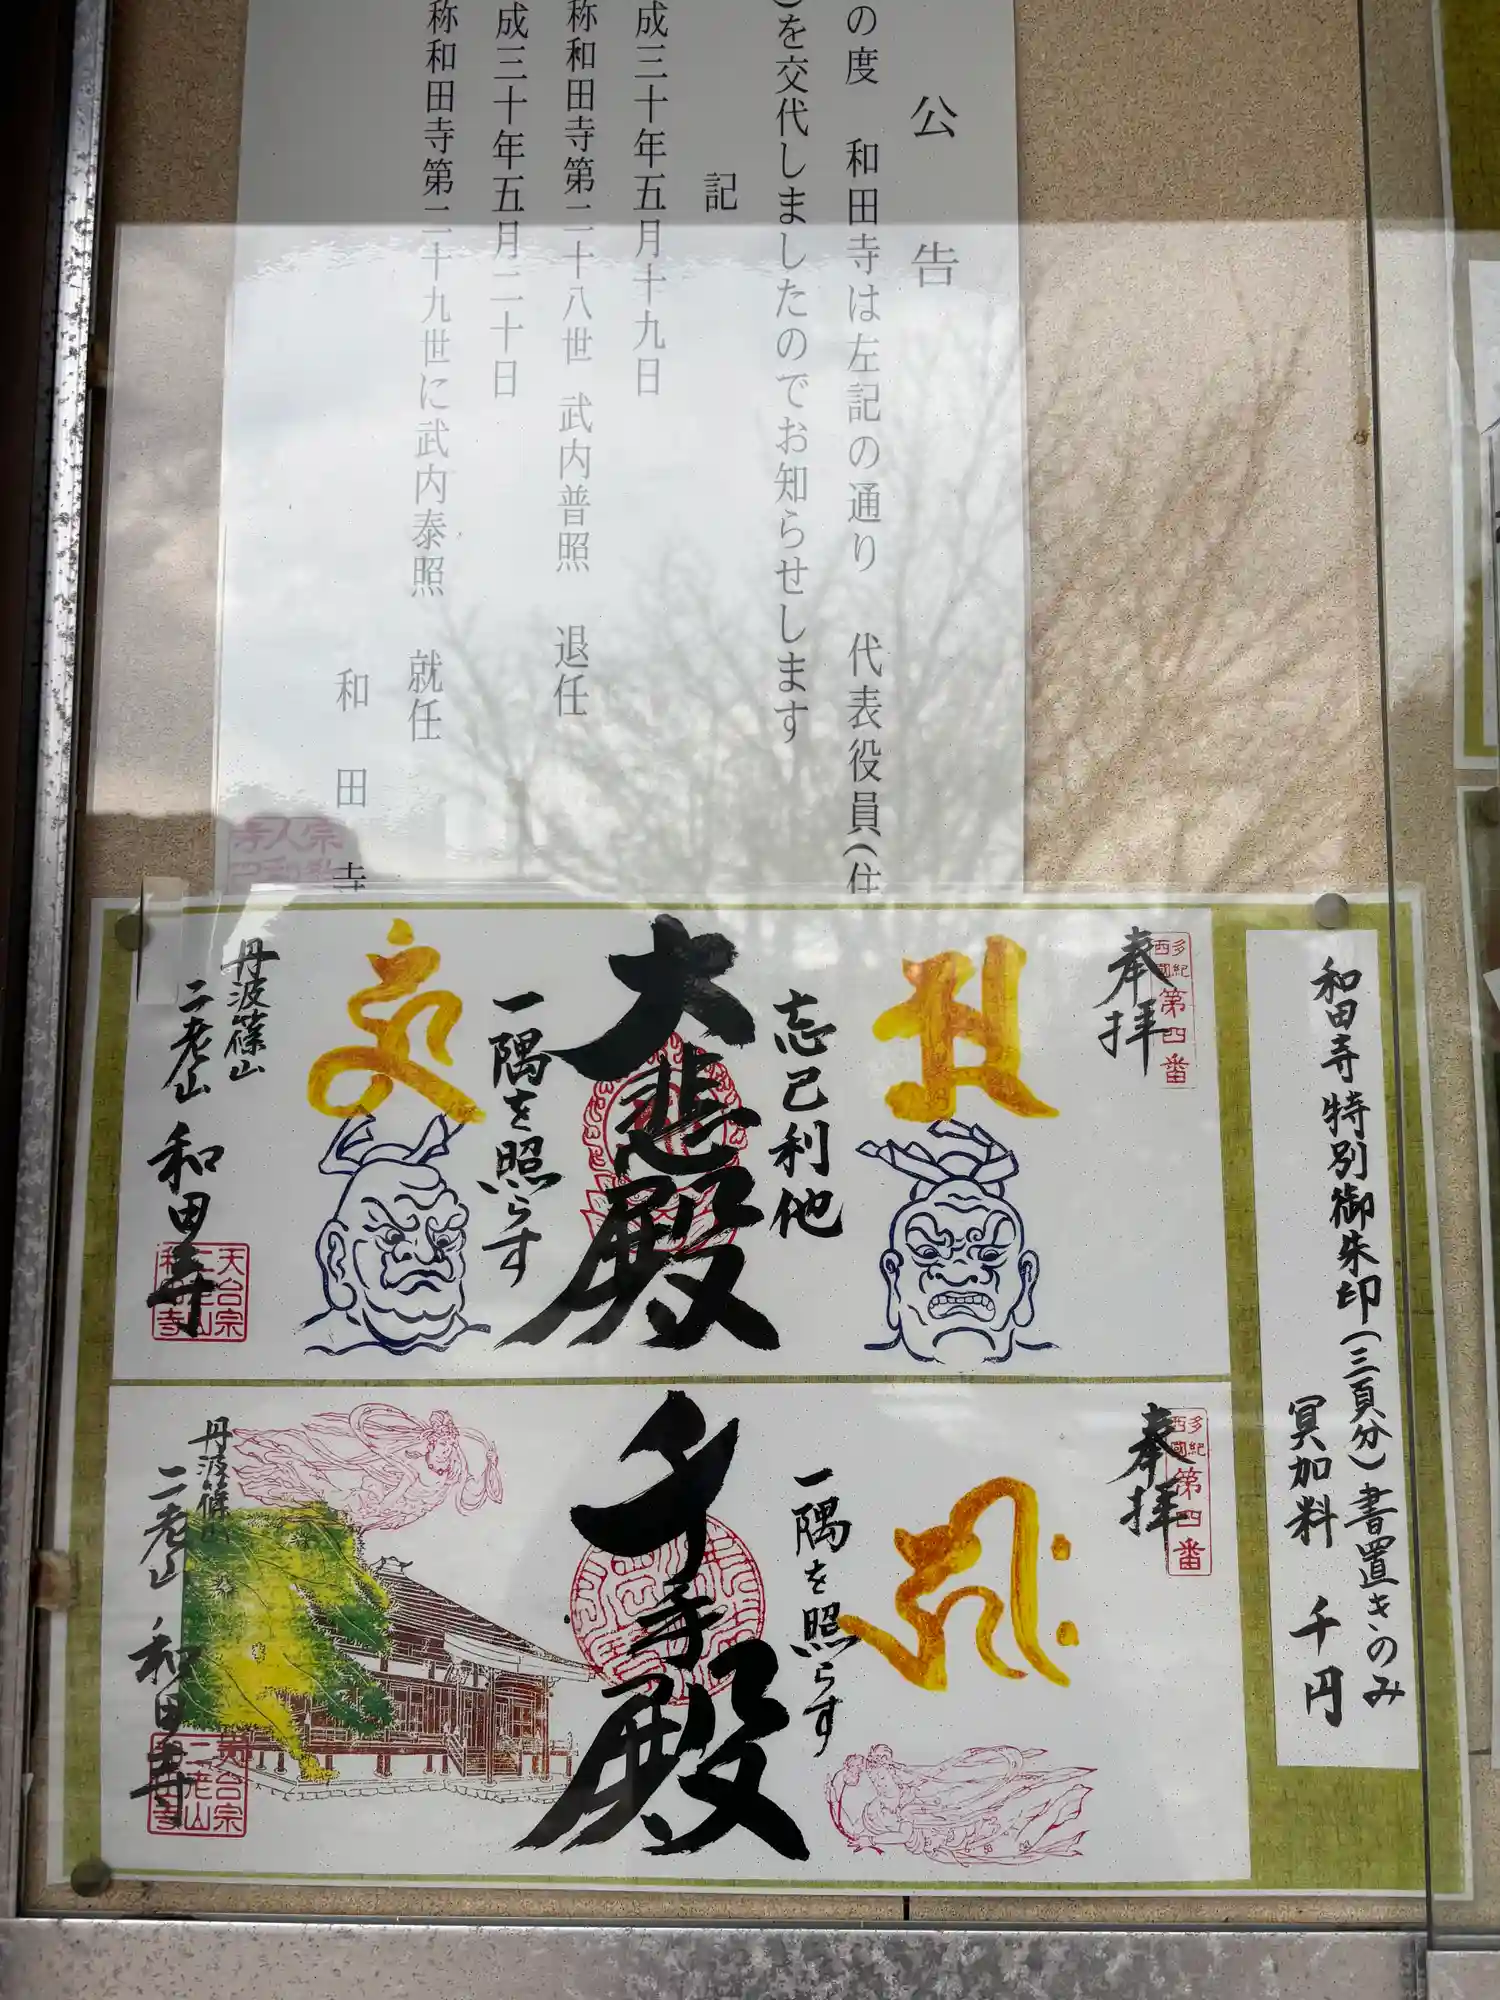 公告
の度 和田寺は左記の通り 代表役員(住
)を交代しましたのでお知らせします
記
成三十年五月十九日
称和田寺第二十八世 武内普照 退任
成三十年五月二十日
称和田寺第二十九世に武内泰照 就任
和田寺
和田寺特別御朱印(三頁分)書置きのみ
冥加料 千円
奉拝
多紀
西国
第四番
忘己利他
大悲殿
一隅を照らす
丹波篠山
二老山 和田寺
天台宗
二老山
和田寺
奉拝
多紀
西国
第四番
一隅を照らす
千手殿
丹波篠山
二老山 和田寺
天台宗
二老山
和田寺